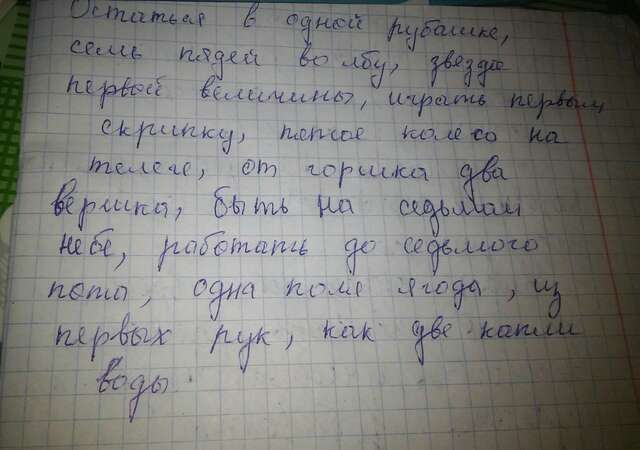 Остаться в одной рубашке,
семь пядей во лбу, звезда
первой величины, играть первым
скрипку, пятое колесо на
телеге, от горшка два
вершка, быть на седьмом
небе, работать до седьмого
пота, одна поля ягоды, из
первых рук, как две капли
воды